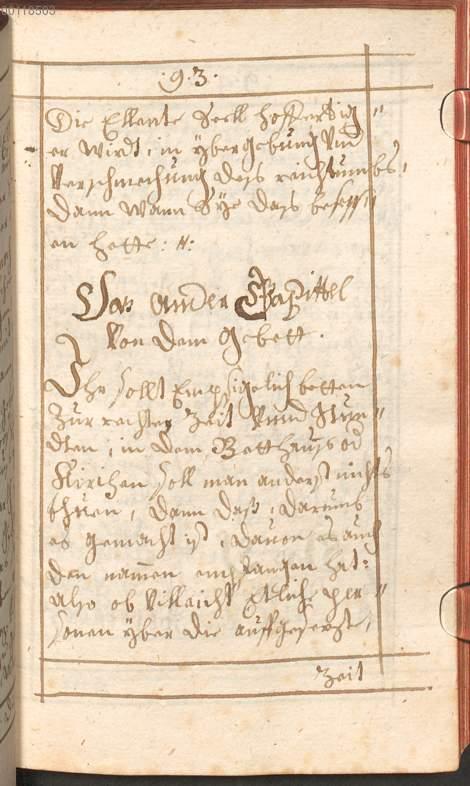 00118503
·93·
Die Ellente Seell hoffertig„
er wirdt, in yber gebung und
Verschmechung deß reichtumbs,
dann wann Sye deß besess„
en hette: „:
Das ander Capittel
Von dem gebett.
Ihr sollt Empsigelich betten
Zur rechten Zeit unnd Stun„
dten, in dem Betthauß od
Kirchen soll man anderst nichts
thuen, dann daß, darumb
es gemacht ist, davon es auch
den namen empfangen hat:
also ob Villeicht etliche per„
sonen yber die auffgesezte,
Zeit